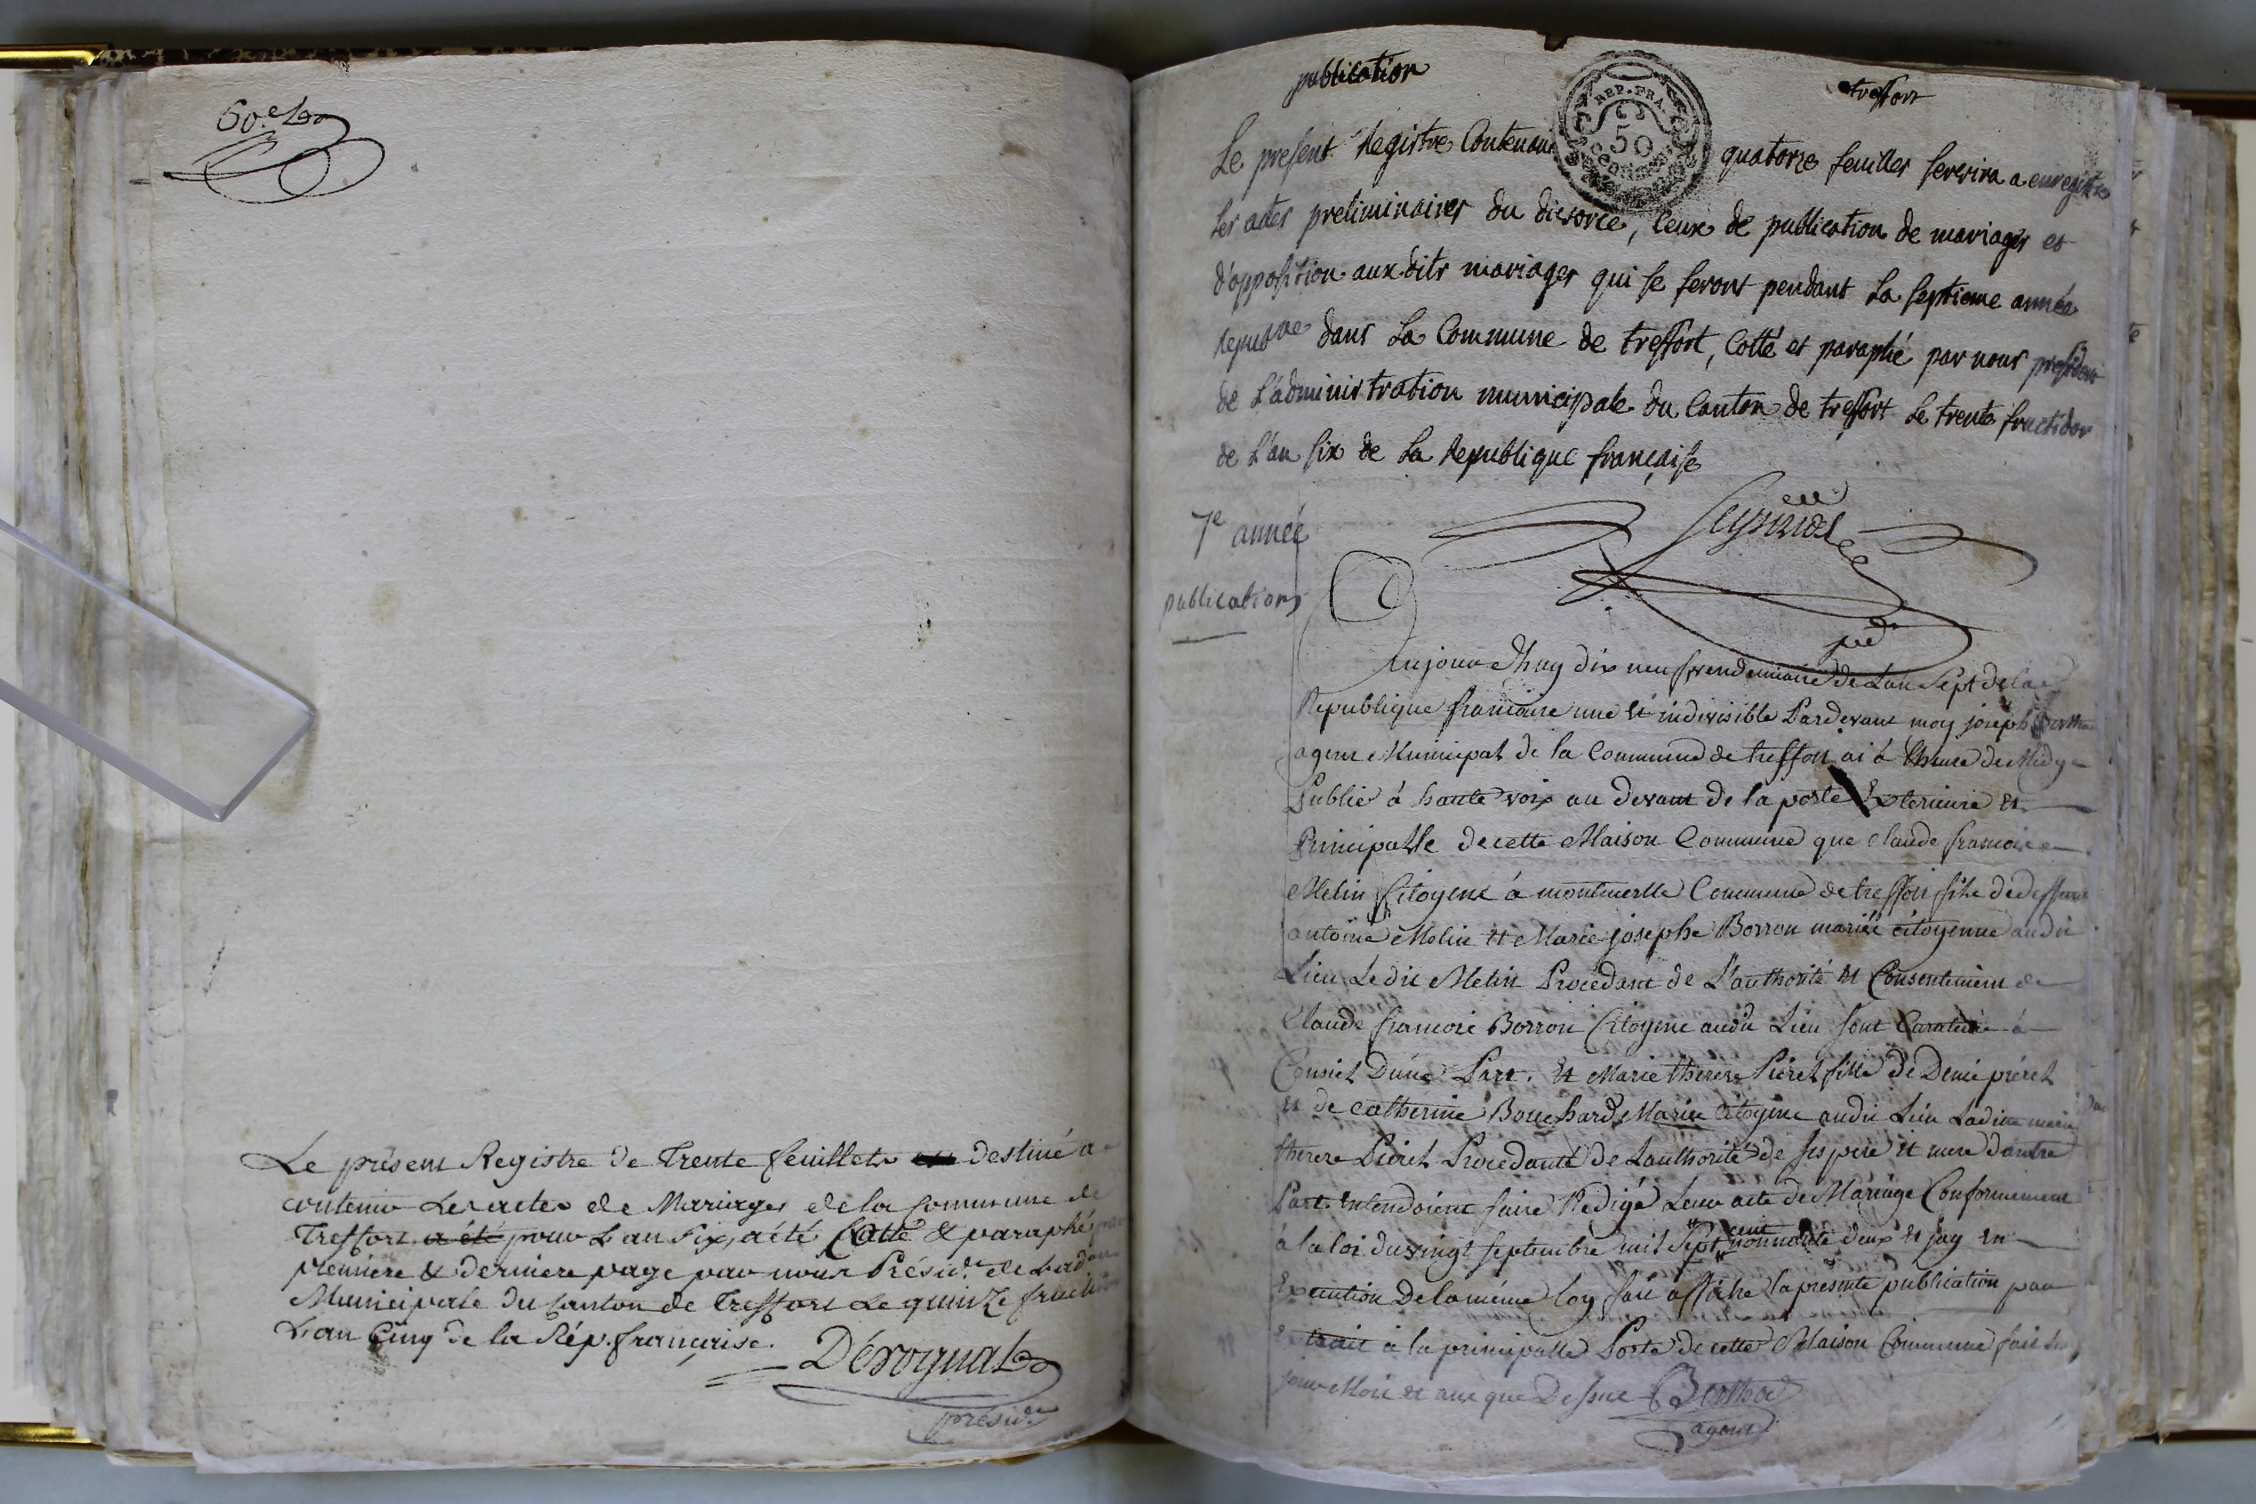 60.e
Le présent Registre de Trente feuillets destiné a
contenir Les actes de Mariages de la Commune de
Treffort a été pour L'an Six, a été Cotté & paraphé par
premiere & derniere page par nous Présid.t de L'ad.on
Municipale du Canton de Treffort Le quinze fructidor
L'an Cinq de la Rép. française.
Dérognat
présid.t
publication
treffort
REP. FRA.
50
centimes
Le present Registre Contenant quatorze feuilles servira a enregistrer
les actes preliminaires du divorce, Ceux de publication de mariages et
d'opposition aux dits mariages qui se feront pendant La septieme année
repub.ne dans La Commune de treffort, Cotté et paraphé par nous president
de L'administration municipale du Canton de treffort Le trente fructidor
de L'an six de La Republique française
7e année
publications
Aujourd'huy dix neuf vendemiaire de L'an Sept de la
Republique francaise une et indivisible Pardevant moy joseph
agent Municipal de la Commune de treffort ai à Lheure de Midy
Publié à haute voix au devant de la porte Exterieure et
Principalle de cette Maison Commune que Claude francois
Melin Citoyene à montmerle Commune de treffort fils de deffunt
antoine Melin et Marie josephe Borron mariée citoyenne audit
Lieu Ledit Melin Procedant de L'authorité et Consentement de
Claude francois Borron Citoyene audit Lieu sont
d'une Part. Et Marie therese Pieret fille de Denis piéret
et de Catherine Bouchard Mariée Citoyene audit Lieu Ladite marie
therese Pieret Procedante de Lauthorité de ses pere et mere d'autre
Part. Entendoient faire Redigé Leur acte de Mariage Conformement
à la loi du vingt septembre mil sept cent nonnante deux et jay en
Execution De la même loy fait affiche la presente publication par
Extrait à la principalle Porte de cette Maison Commune fait les
jour Mois et an que Dessus
agent